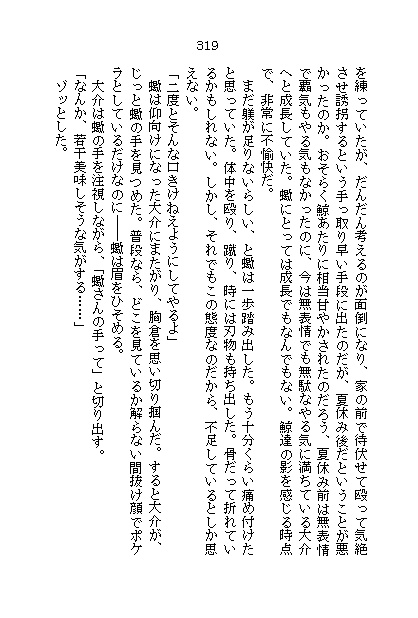 319
を練っていたが、だんだん考えるのが面倒になり、家の前で待伏せて殴って気絶
させ誘拐するという手っ取り早い手段に出たのだが、夏休み後だということが悪
かったのか。おそらく鯨あたりに相当甘やかされたのだろう、夏休み前は無表情
で覇気もやる気もなかったのに、今は無表情でも無駄なやる気に満ちている大介
へと成長していた。蠍にとっては成長でもなんでもない。鯨達の影を感じる時点
で、非常に不愉快だ。
まだ躾が足りないらしい、と蠍は一歩踏み出した。もう十分くらい痛め付けた
と思っていた。体中を殴り、蹴り、時には刃物も持ち出した。骨だって折れてい
るかもしれない。しかし、それでもこの態度なのだから、不足しているとしか思
えない。
「二度とそんな口きけねえようにしてやるよ」
蠍は仰向けになった大介にまたがり、胸倉を思い切り掴んだ。すると大介が、
じっと蠍の手を見つめた。普段なら、どこを見ているか解らない間抜け顔でポケ
ラとしているだけなのに――蠍は眉をひそめる。
大介は蠍の手を注視しながら、「蠍さんの手って」と切り出す。
「なんか、若干美味しそうな気がする……」
ゾッとした。